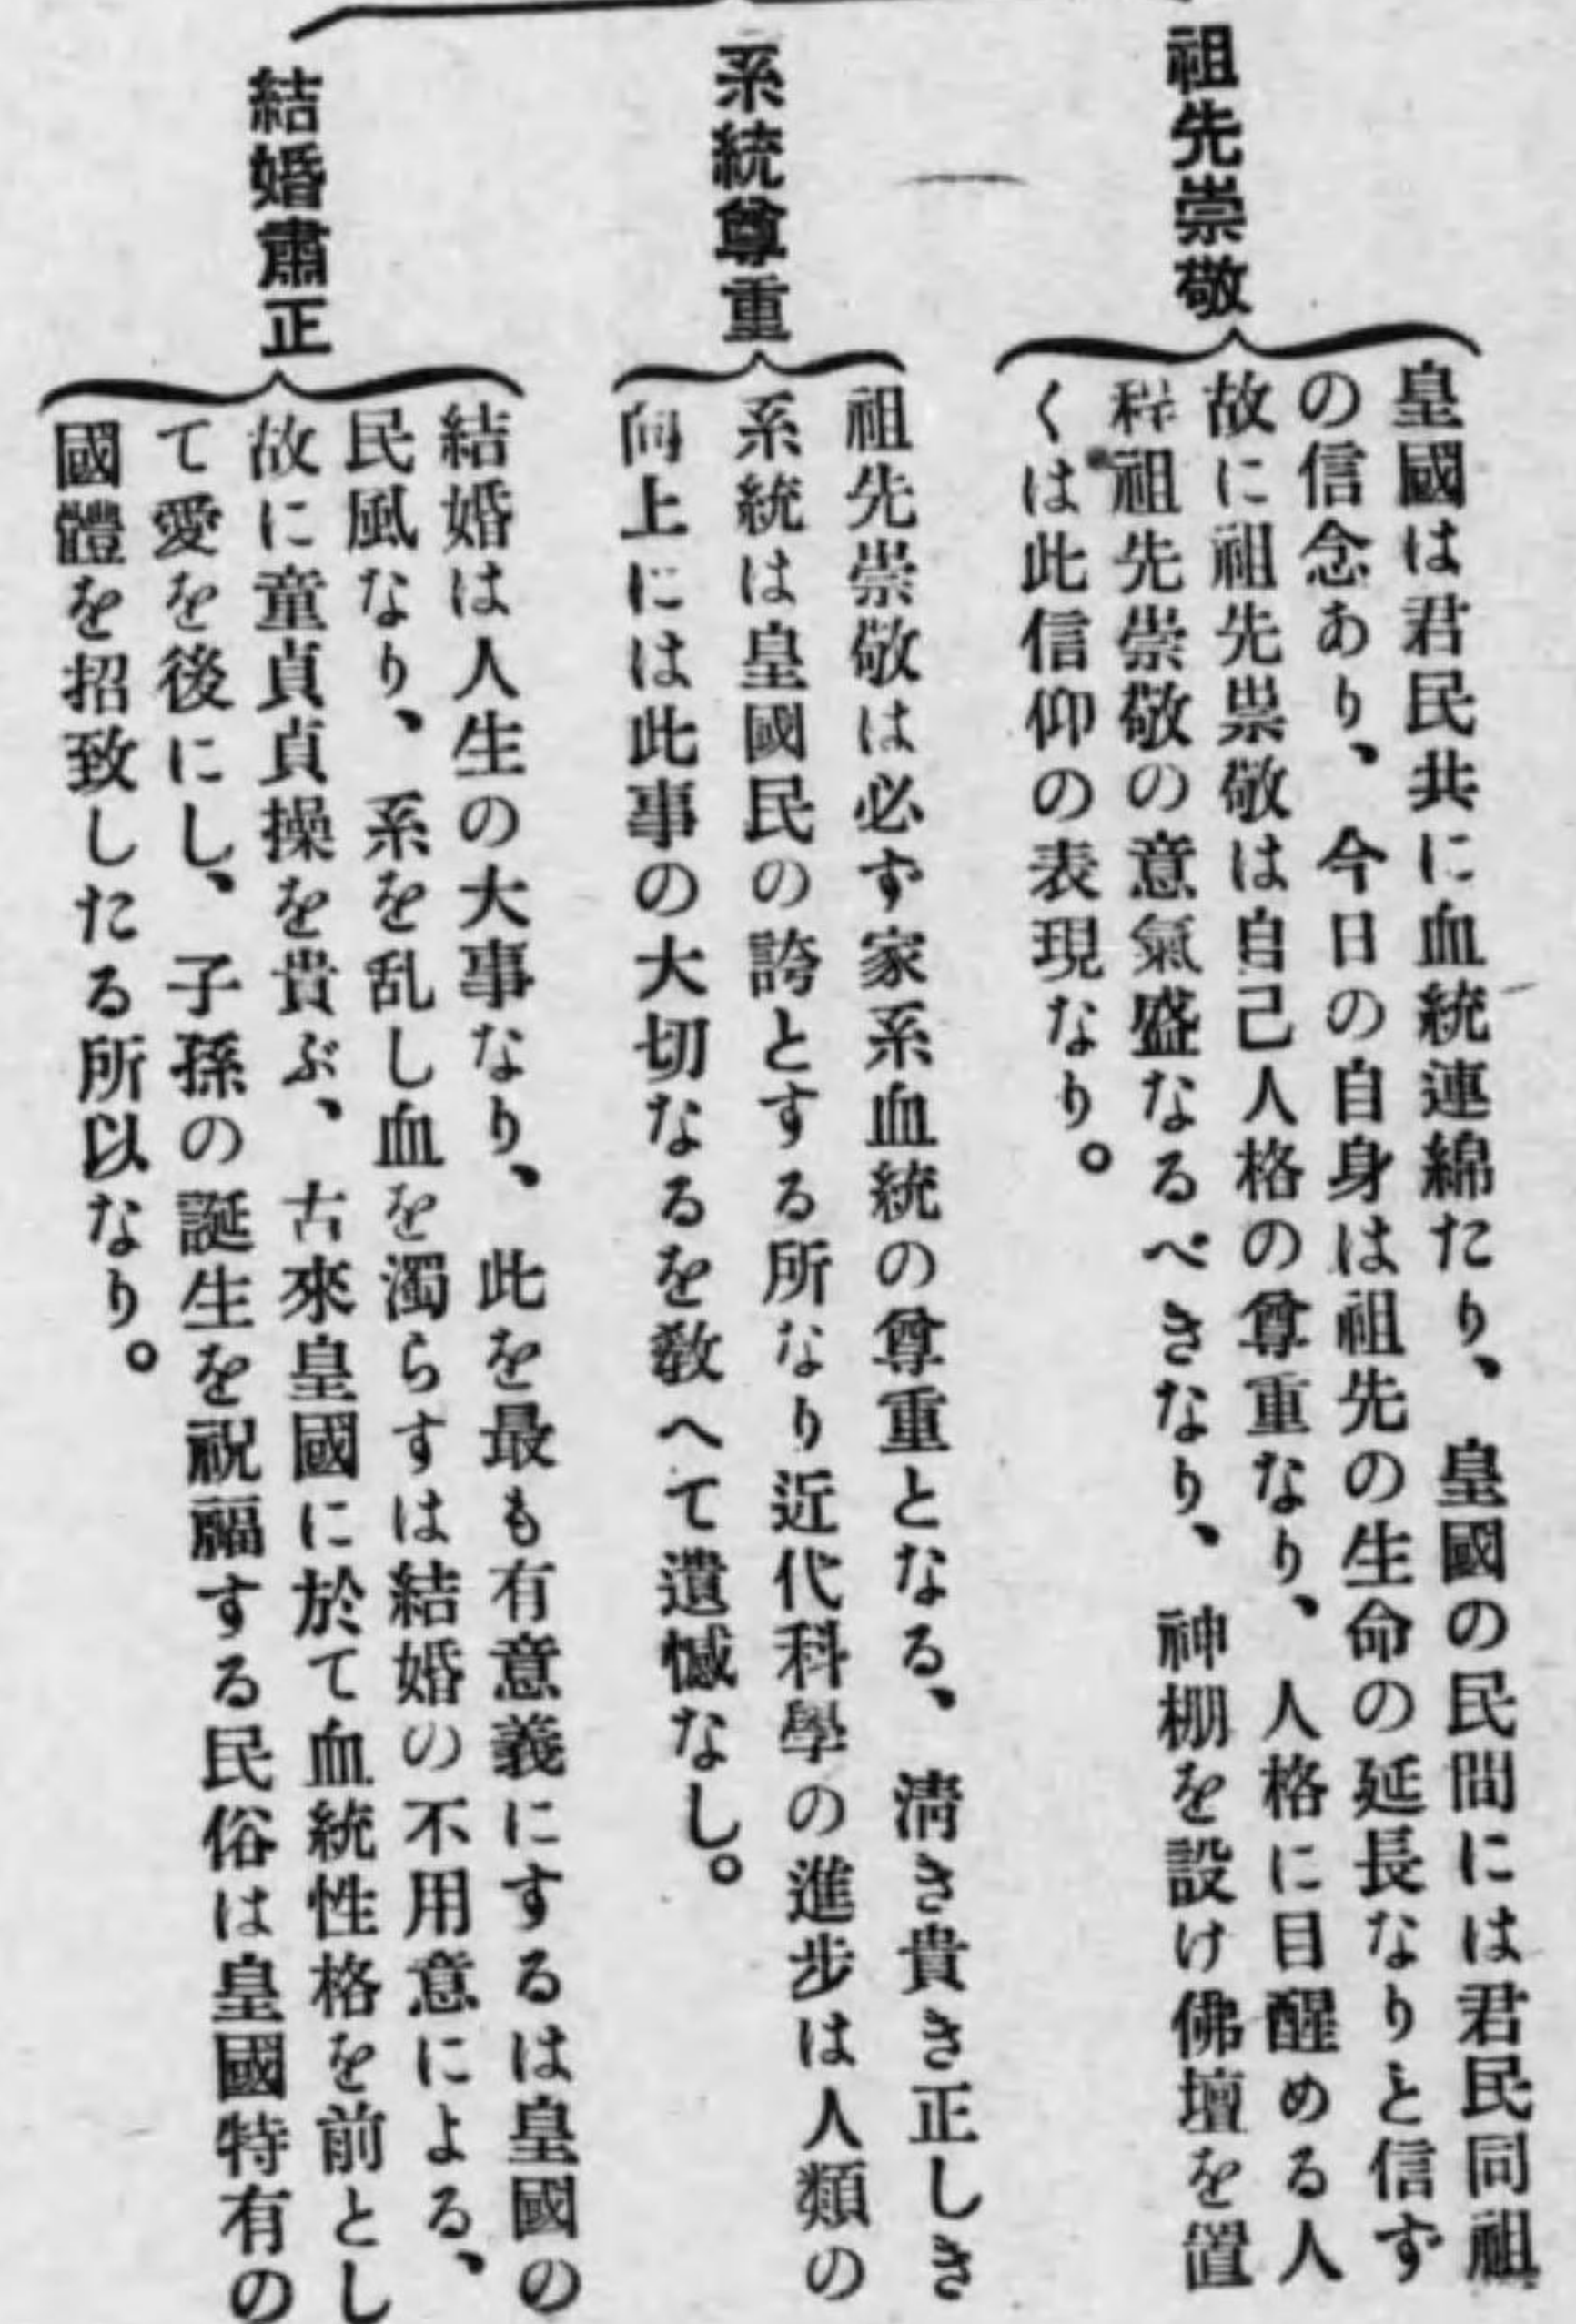 祖先崇敬
皇國は君民共に血統連綿たり、皇國の民間には君民同祖
の信念あり、今日の自身は祖先の生命の延長なりと信ず
故に祖先祟敬は自己人格の尊重なり、人格に目醒める人
程祖先崇敬の意氣盛なるべきなり、神棚を設け佛壇を置
くは此信仰の表現なり。
系統尊重
祖先崇敬は必ず家系血統の尊重となる、淸き貴き正しき
系統は皇國民の誇とする所なり近代科學の進步は人類の
向上には此事の大切なるを敎へて遺憾なし。
結婚肅正
結婚は人生の大事なり、此を最も有意義にするは皇國の
民風なり、系を乱し血を濁らすは結婚の不用意による、
故に童貞貞操を貴ぶ、古來皇國に於て血統性格を前とし
て愛を後にし、子孫の誕生を祝福する民俗は皇國特有の
國體を招致したる所以なり。